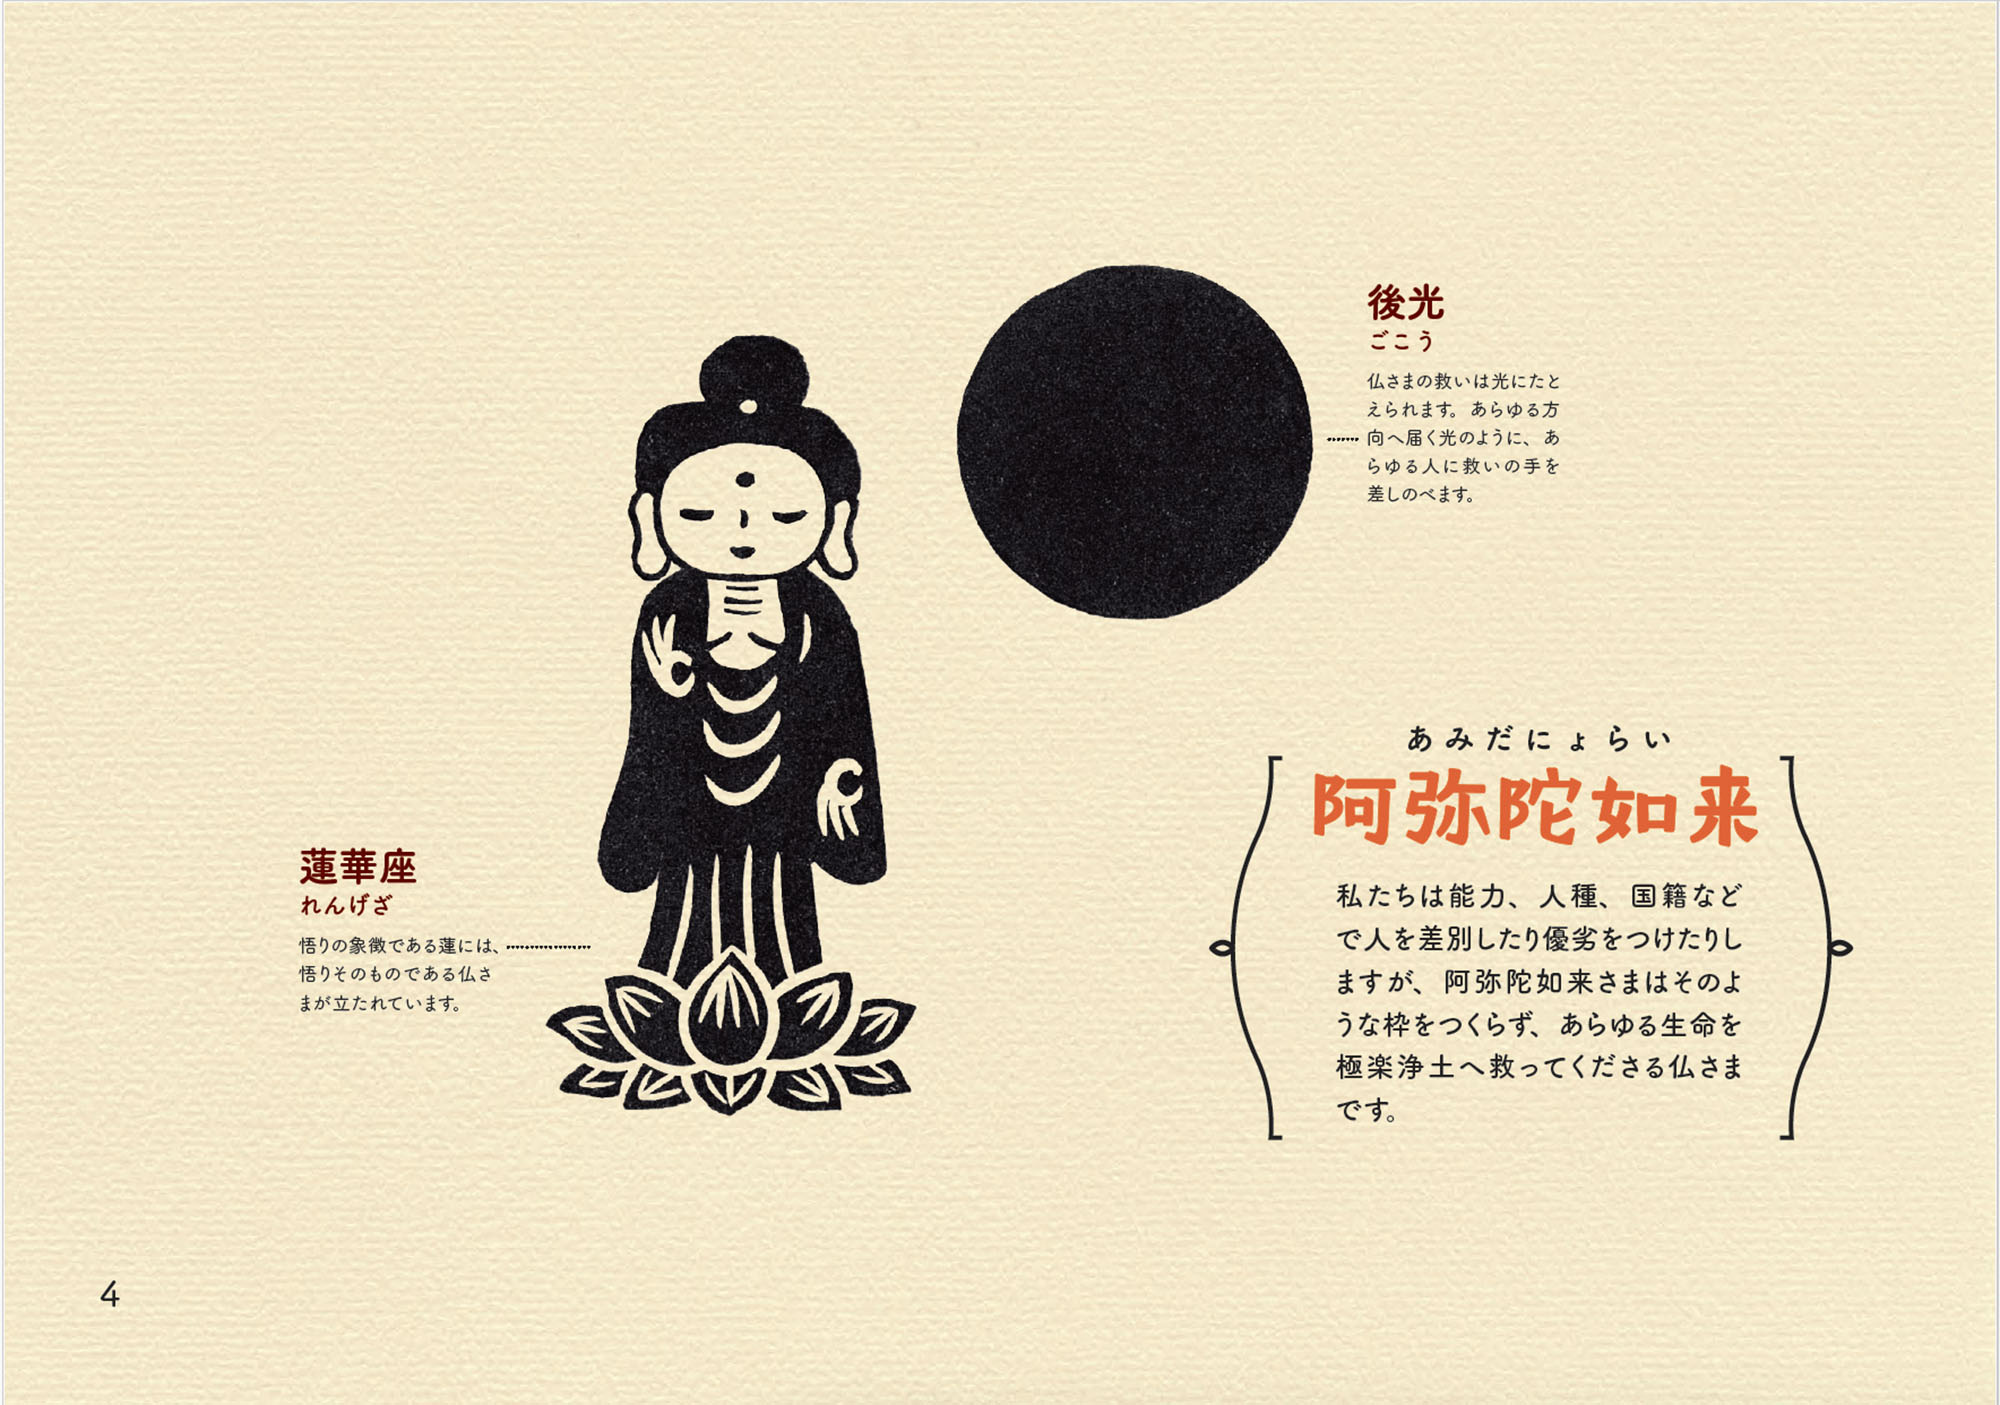 後光
ごこう
仏さまの救いは光にたと
えられます。あらゆる方
向へ届く光のように、あ
らゆる人に救いの手を
差しのべます。
あみだにょらい
阿弥陀如来
私たちは能力、人種、国籍など
で人を差別したり優劣をつけたりし
ますが、阿弥陀如来さまはそのよ
うな枠をつくらず、あらゆる生命を
極楽浄土へ救ってくださる仏さま
です。
蓮華座
れんげざ
悟りの象徴である蓮には、
悟りそのものである仏さ
まが立たれています。
4